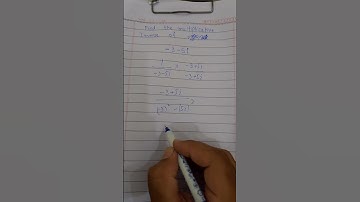 Find the multiplicative
Inverse of
-3-√5
1/-3-√5 × -3+√5/-3+√5
-3+√5/(3)² -(√5)²